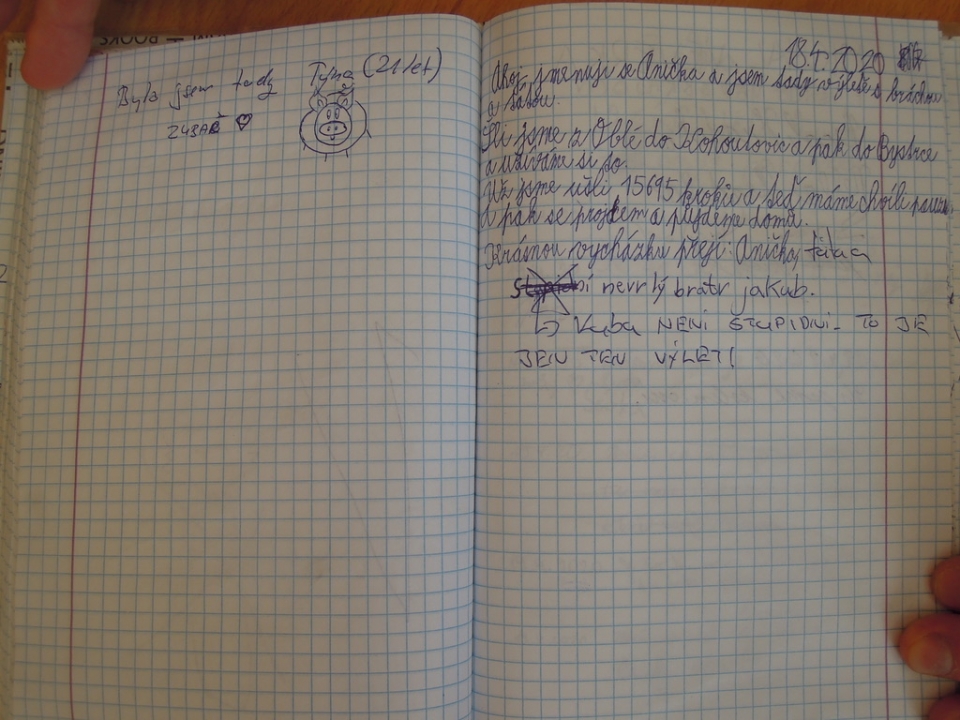 Byla jsem tady Týna (21 let)
ZUBAŘ ♡
18.4.2020
Ahoj, jmenuji se Anička a jsem tady výletě s bráchou
a tátou.
Šli jsme z Oblé do Kohoutovic a pak do Bystrce
a užíváme si to.
Už jsme ušli 15695 kroků a teď máme chvíli pauzu.
A pak se projdem a půjdeme domů.
Krásnou vycházku přejí: Anička, táta a
nevrlý bratr jakub.
↳ Kuba NENÍ STUPIDNÍ - TO JE
JEN TEN VÝLET!